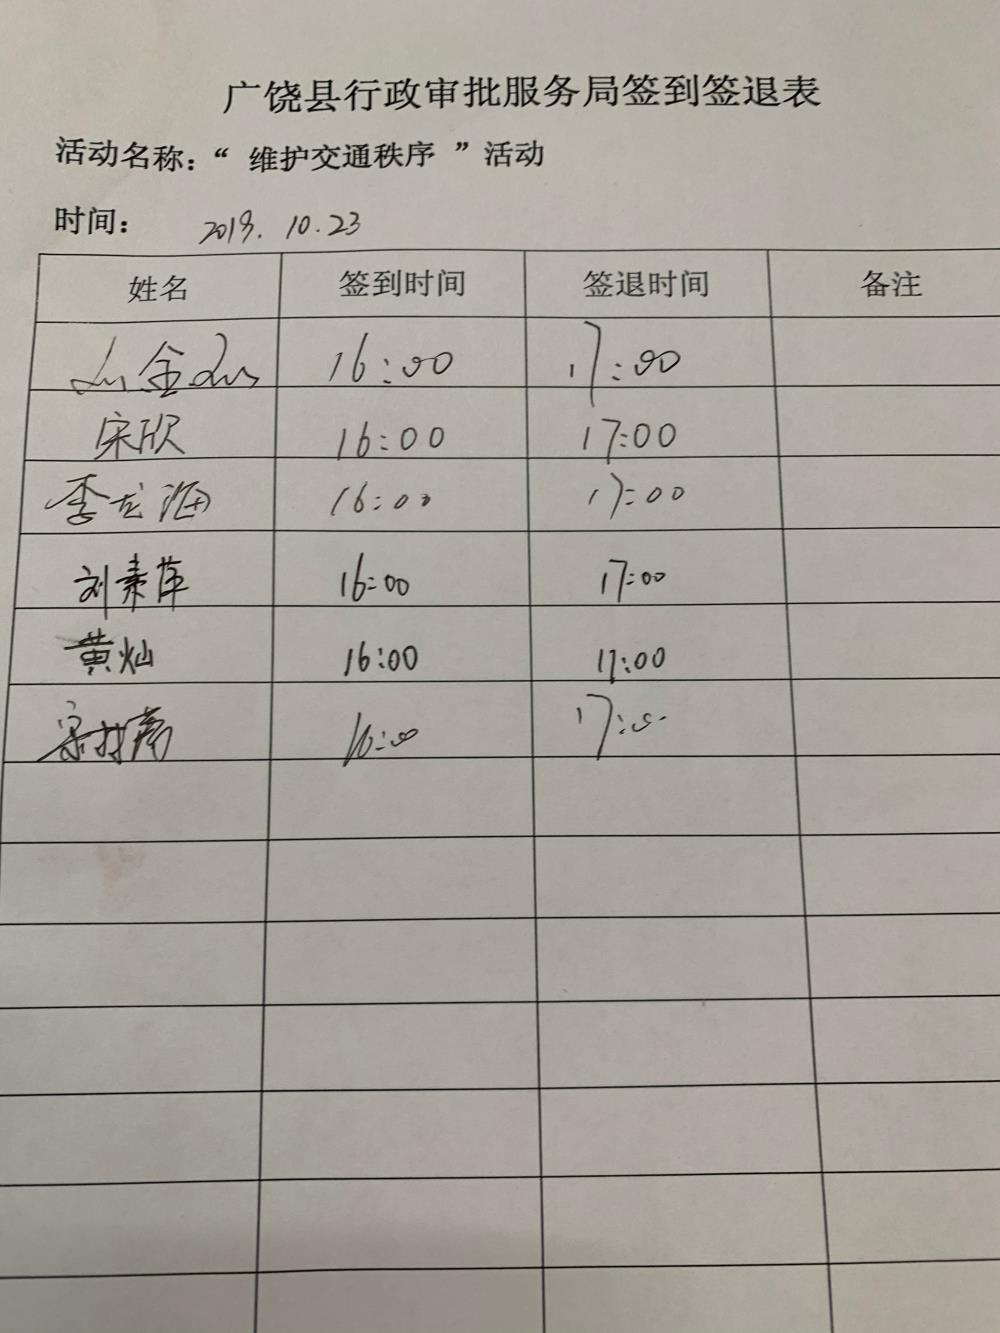 广饶县行政审批服务局签到签退表
活动名称：“ 维护交通秩序 ”活动
时间： 2019.10.23
姓名 签到时间 签退时间 备注
16:00 17:00
宋欣 16:00 17:00
李龙海 16:00 17:00
刘素萍 16:00 17:00
黄灿 16:00 17:00
16:00 17:00